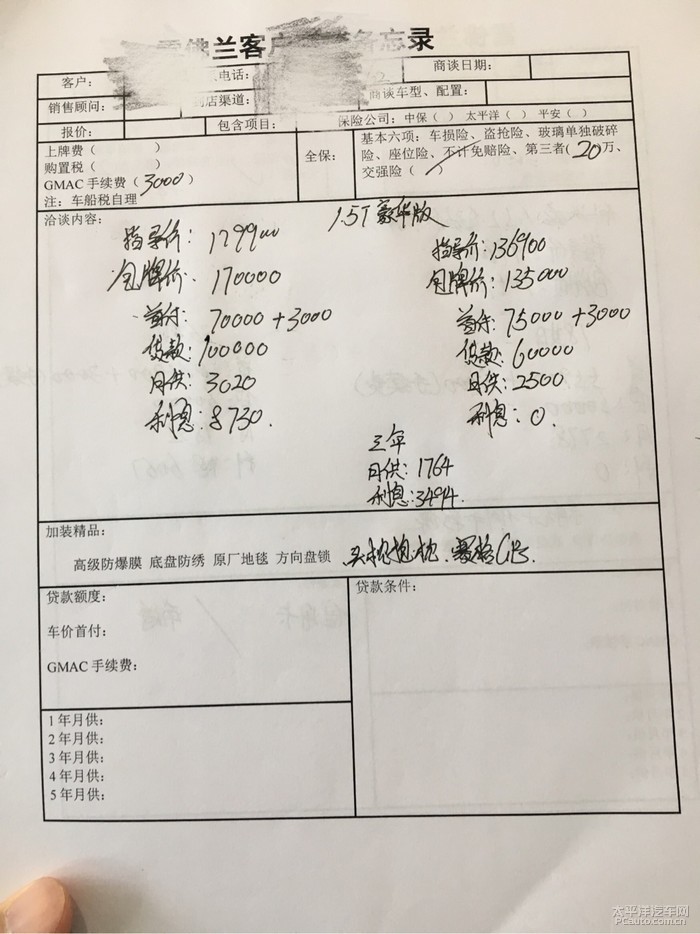 佛兰客户 备忘录
客户： 电话： 商谈日期：
销售顾问： 店渠道： 商谈车型、配置：
报价： 包含项目： 保险公司：中保（ ） 太平洋（ ） 平安（ ）
上牌费（ ）
购置税（ ）
GMAC 手续费（3000）
注：车船税自理
全保：
基本六项：车损险、盗抢险、玻璃单独破碎
险、座位险、不计免赔险、第三者（20）万、
交强险（ ）
洽谈内容：
1.5T 豪华版
指导价：179900
包牌价：170000
首付：70000+3000
贷款：100000
月供：3020
利息：8730.
指导价：136900
包牌价：135000
首付：75000+3000
贷款：60000
月供：2500
利息：0.
三年
月供：1764
利息：3494.
加装精品：
高级防爆膜 底盘防绣 原厂地毯 方向盘锁
贷款额度：
车价首付：
GMAC 手续费：
贷款条件：
1 年月供：
2 年月供：
3 年月供：
4 年月供：
5 年月供：
太平洋汽车网
PCauto.com.cn